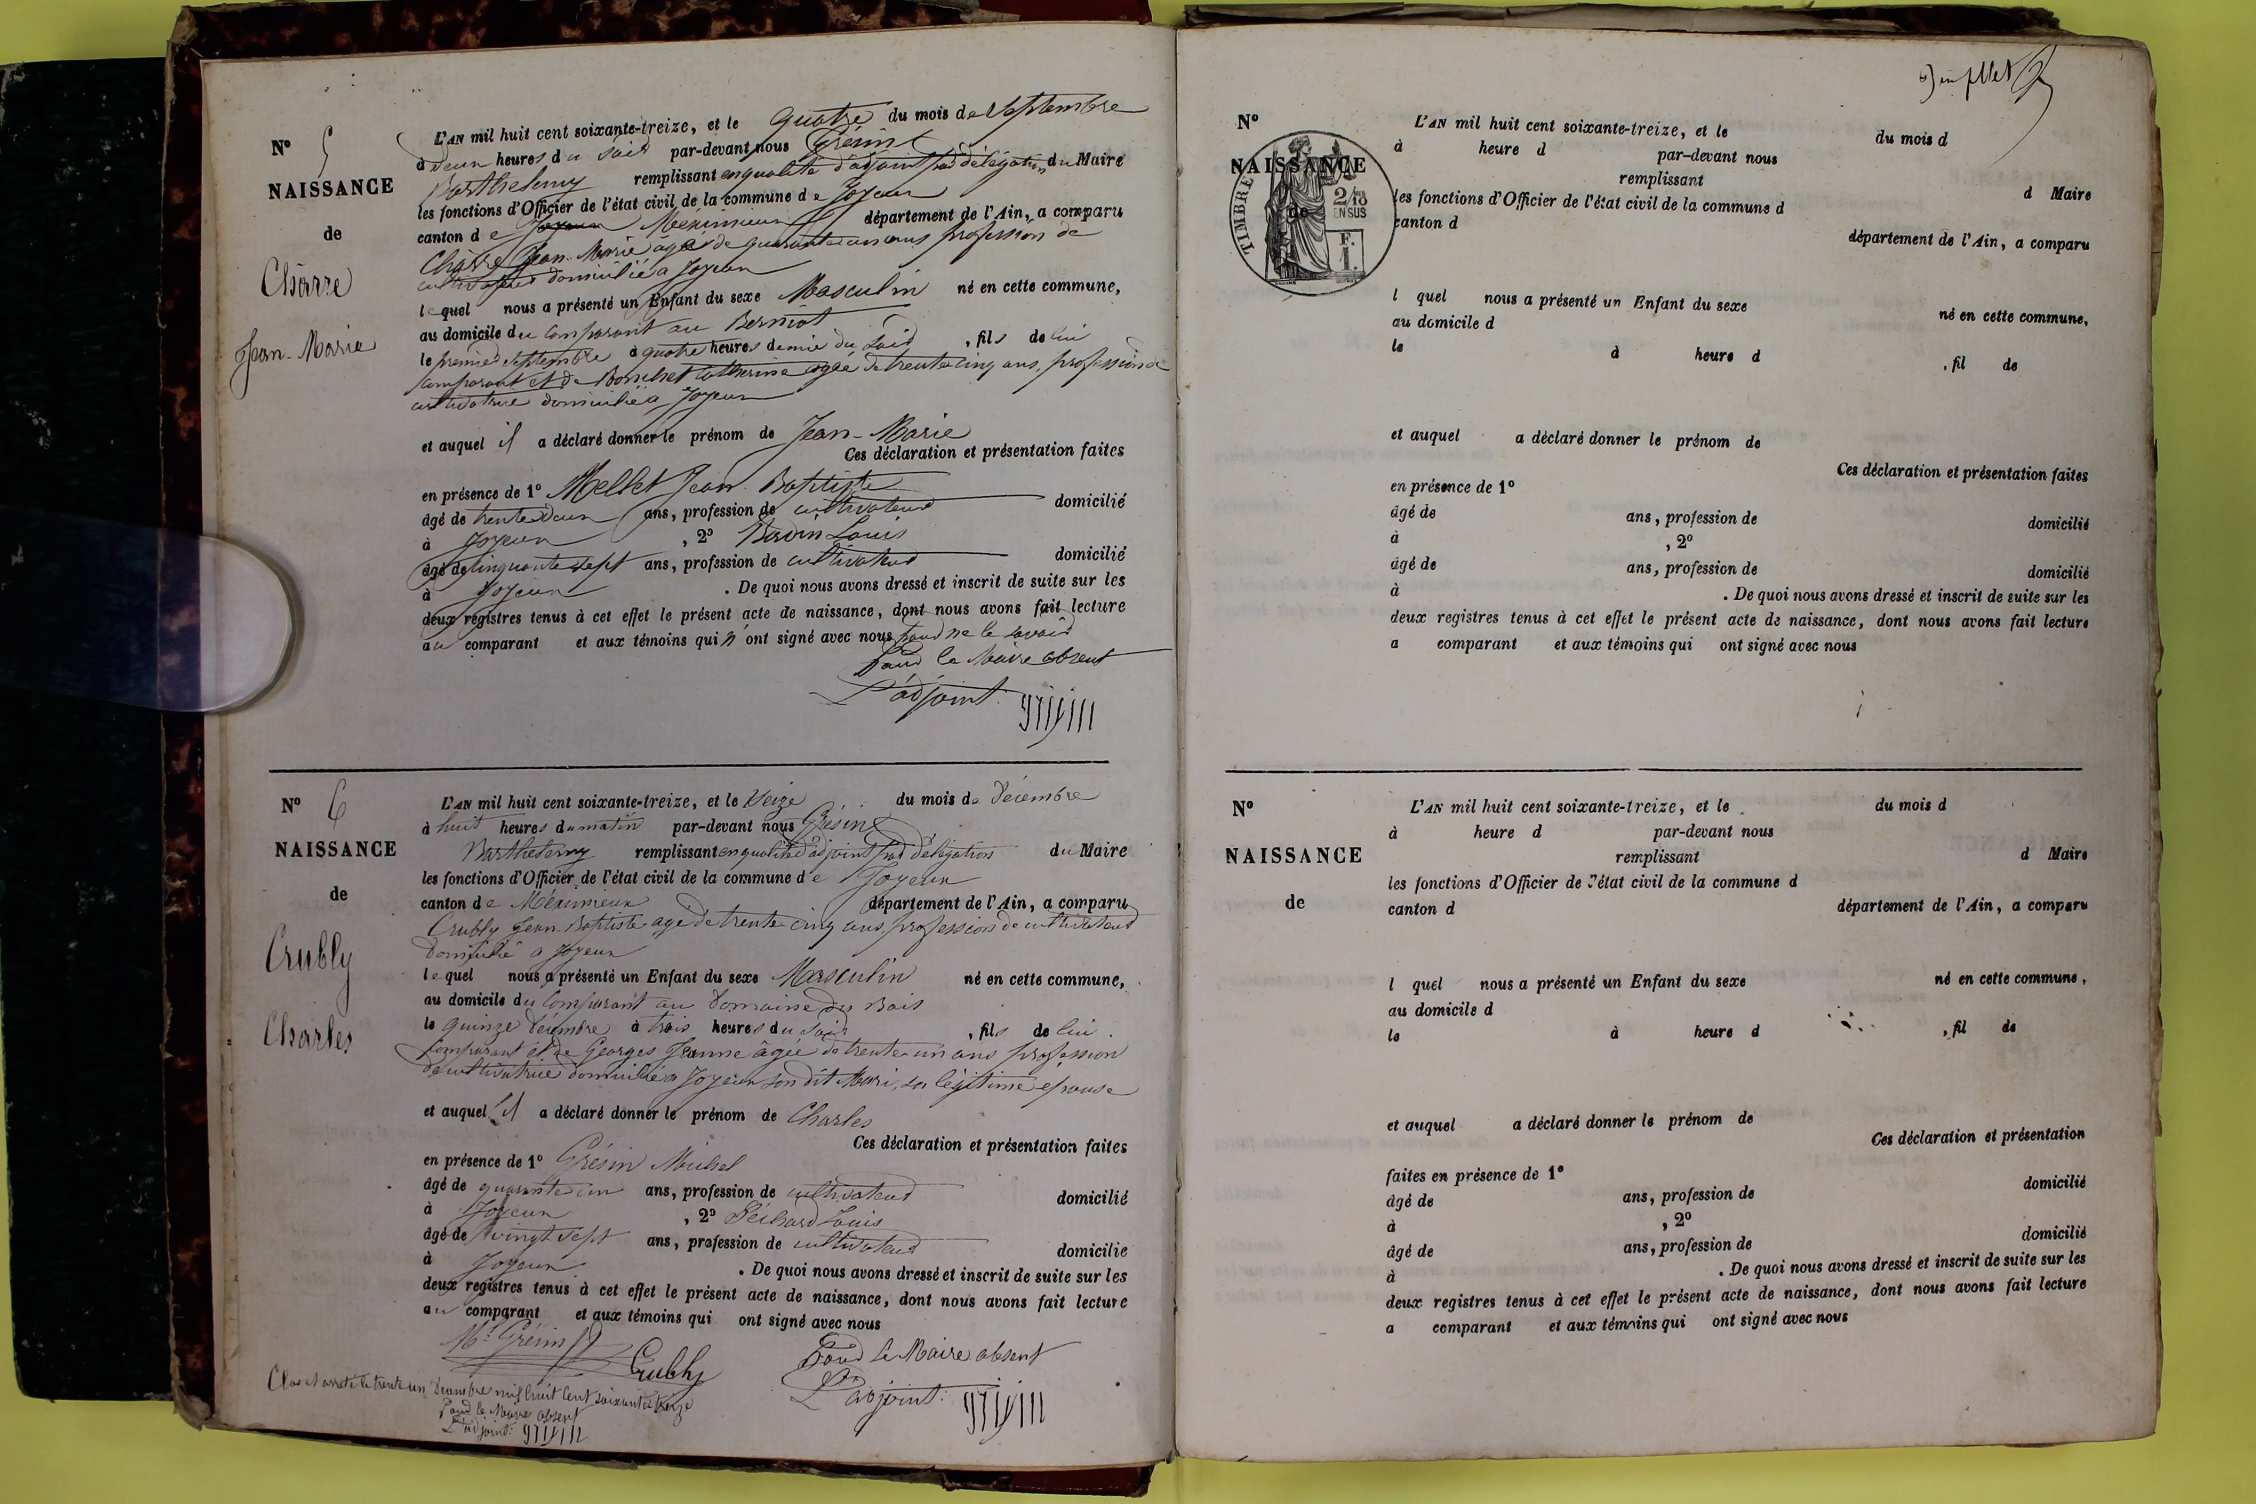 N° 5
NAISSANCE
de
Charre
Jean-Marie
L'AN mil huit cent soixante-treize, et le quatre du mois de Septembre
à deux heures du soir par-devant nous Grésin
Barthelemy remplissant en qualité d'adjoint par délégation du Maire
les fonctions d'Officier de l'état civil de la commune de Joyeux
canton de Joyeux Meximieux département de l'Ain, a comparu
Charre Jean-Marie âgé de quarante ans profession de
cultivateur domicilié à Joyeux
lequel nous a présenté un Enfant du sexe Masculin né en cette commune,
au domicile du comparant au Berniot
le premier Septembre à quatre heures demie du soir , fils de lui
comparant et de Bonchet Catherine agée de trente cinq ans, profession de
cultivatrice domiciliée à Joyeux
et auquel il a déclaré donner le prénom de Jean-Marie
Ces déclaration et présentation faites
en présence de 1° Mellet Jean Baptiste
âgé de trente deux ans, profession de cultivateur domicilié
à Joyeux , 2° Bavin Louis
âgé de cinquante sept ans, profession de cultivateur domicilié
à Joyeux . De quoi nous avons dressé et inscrit de suite sur les
deux registres tenus à cet effet le présent acte de naissance, dont nous avons fait lecture
au comparant et aux témoins qui n'ont signé avec nous pour ne le savoir
Pour le Maire absent
L'adjoint: grésin
N° 6
NAISSANCE
de
Crubly
Charles
L'AN mil huit cent soixante-treize, et le Seize du mois de décembre
à huit heures du matin par-devant nous Grésin
Barthelemy remplissant en qualité d'adjoint par délégation du Maire
les fonctions d'Officier de l'état civil de la commune de Joyeux
canton de Méximieux département de l'Ain, a comparu
Crubly Jean-Baptiste agé de trente cinq ans, profession de cultivateur
domicilié à Joyeux
lequel nous a présenté un Enfant du sexe Masculin né en cette commune,
au domicile du comparant au domaine du Bois
le quinze décembre à trois heures du soir , fils de lui
comparant et de Georges Jeanne âgée de trente un ans profession
de cultivatrice domiciliée à Joyeux son dit Mari, sa légitime épouse
et auquel il a déclaré donner le prénom de Charles
Ces déclaration et présentation faites
en présence de 1° Grésin Michel
âgé de quarante un ans, profession de cultivateur domicilié
à Joyeux , 2° Péchard Louis
âgé de vingt sept ans, profession de cultivateur domicilie
à Joyeux . De quoi nous avons dressé et inscrit de suite sur les
deux registres tenus à cet effet le présent acte de naissance, dont nous avons fait lecture
au comparant et aux témoins qui ont signé avec nous
Mel Grésin Crubly Pour le Maire absent
L'adjoint: grésin
Clos et arreté le trente un décembre mil huit cent soixante treize
Pour le Maire absent
L'adjoint: grésin
N°
NAISSANCE
de
TIMBRE
2/10
EN SUS
F.
1.
L'AN mil huit cent soixante-treize, et le du mois d
à heure d par-devant nous
remplissant d Maire
les fonctions d'Officier de l'état civil de la commune d
canton d département de l'Ain, a comparu
l quel nous a présenté un Enfant du sexe né en cette commune,
au domicile d
le à heure d , fil de
et auquel a déclaré donner le prénom de
Ces déclaration et présentation faites
en présence de 1°
âgé de ans, profession de domicilié
à , 2°
âgé de ans, profession de domicilié
à . De quoi nous avons dressé et inscrit de suite sur les
deux registres tenus à cet effet le présent acte de naissance, dont nous avons fait lecture
a comparant et aux témoins qui ont signé avec nous
N°
NAISSANCE
de
L'AN mil huit cent soixante-treize, et le du mois d
à heure d par-devant nous
remplissant d Maire
les fonctions d'Officier de l'état civil de la commune d
canton d département de l'Ain, a comparu
l quel nous a présenté un Enfant du sexe né en cette commune,
au domicile d
le à heure d , fil de
et auquel a déclaré donner le prénom de
Ces déclaration et présentation
faites en présence de 1°
âgé de ans, profession de domicilié
à , 2°
âgé de ans, profession de domicilié
à . De quoi nous avons dressé et inscrit de suite sur les
deux registres tenus à cet effet le présent acte de naissance, dont nous avons fait lecture
a comparant et aux témoins qui ont signé avec nous